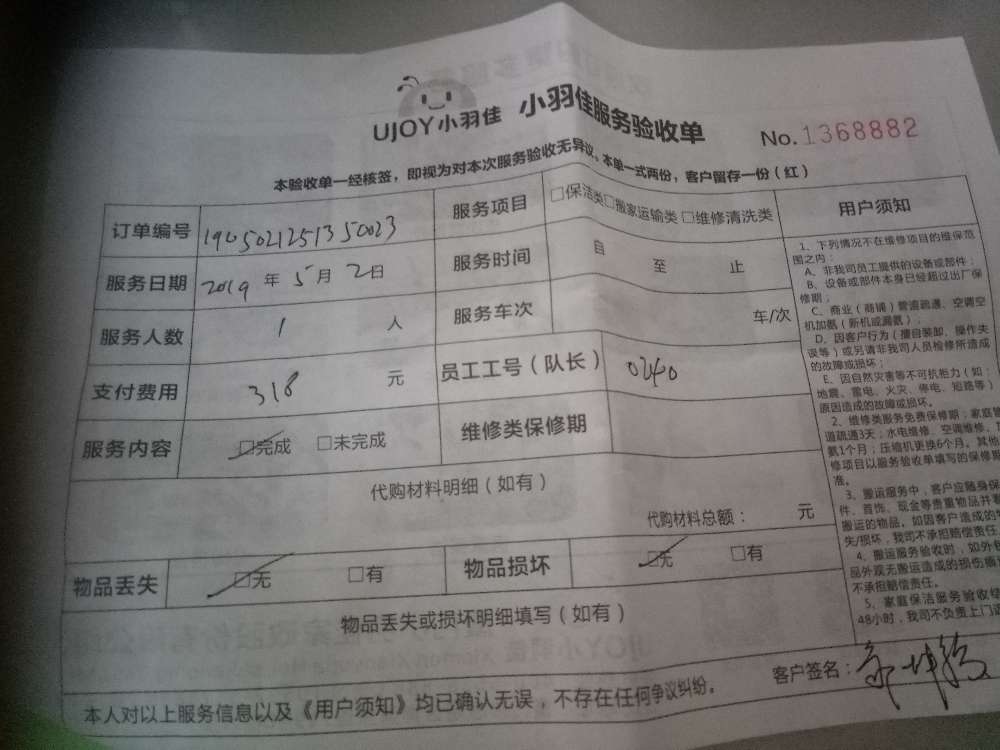 UJOY小羽佳 小羽佳服务验收单 No.1368882
本验收单一经核签，即视为对本次服务验收无异议。本单一式两份，客户留存一份（红）
订单编号 1905021251350023 服务项目 □保洁类□搬家运输类 □维修清洗类
服务日期 2019 年 5 月 2 日 服务时间 自 至 止
服务人数 1 人 服务车次 车/次
支付费用 318 元 员工工号（队长） 0240
服务内容 □完成 □未完成 维修类保修期
代购材料明细（如有）
代购材料总额： 元
物品丢失 □无 □有 物品损坏 □无 □有
物品丢失或损坏明细填写（如有）
本人对以上服务信息以及《用户须知》均已确认无误，不存在任何争议纠纷。 客户签名：
用户须知
1、下列情况不在维修项目的维保范
围之内：
A、非我司员工提供的设备或部件；
B、设备或部件本身已经超过出厂保
修期；
C、商业（商铺）管道疏通、空调空
机加氨（新机或漏氨）；
D、因客户行为（擅自装卸、操作失
误等）或另请非我司人员检修所造成
的故障或损坏；
E、因自然灾害等不可抗拒力（如：
地震、雷电、火灾、停电、短路等）
原因造成的故障或损坏。
2、维修类服务免费保修期：家庭管
道疏通3天；水电维修、空调维修、
氨1个月；压缩机更换6个月。其他
修项目以服务验收单填写的保修期
准。
3、搬运服务中，客户应随身保
件、首饰、现金等贵重物品并
搬运的物品。如因客户造成的
失/损坏，我司不承担赔偿责任
4、搬运服务验收时，如外
品外观无搬运造成的损伤
不承担赔偿责任。
5、家庭保洁服务验收
48小时，我司不负责上门